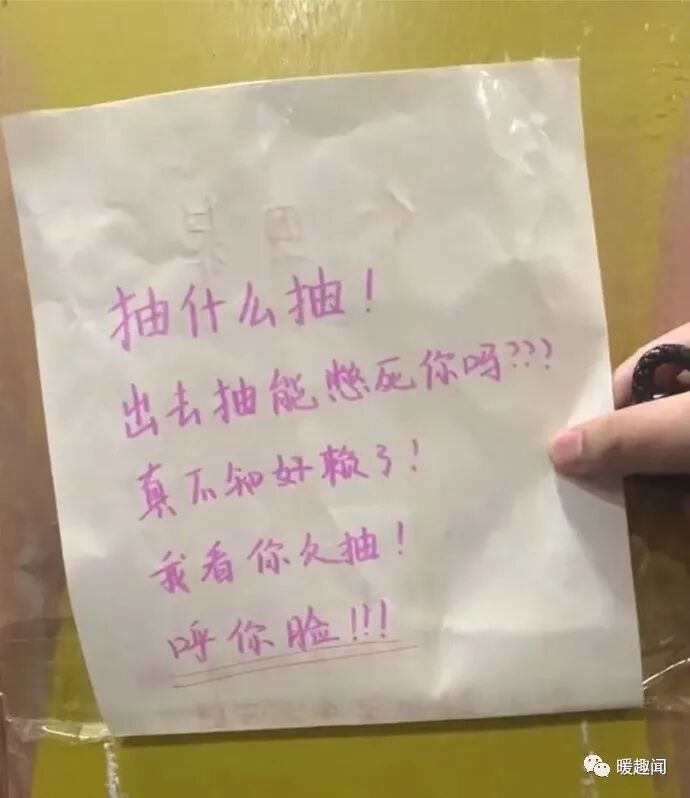 抽什么抽!
出去抽能憋死你吗???
真不知好赖了!
我看你欠抽!
呼你脸!!!
暖趣闻